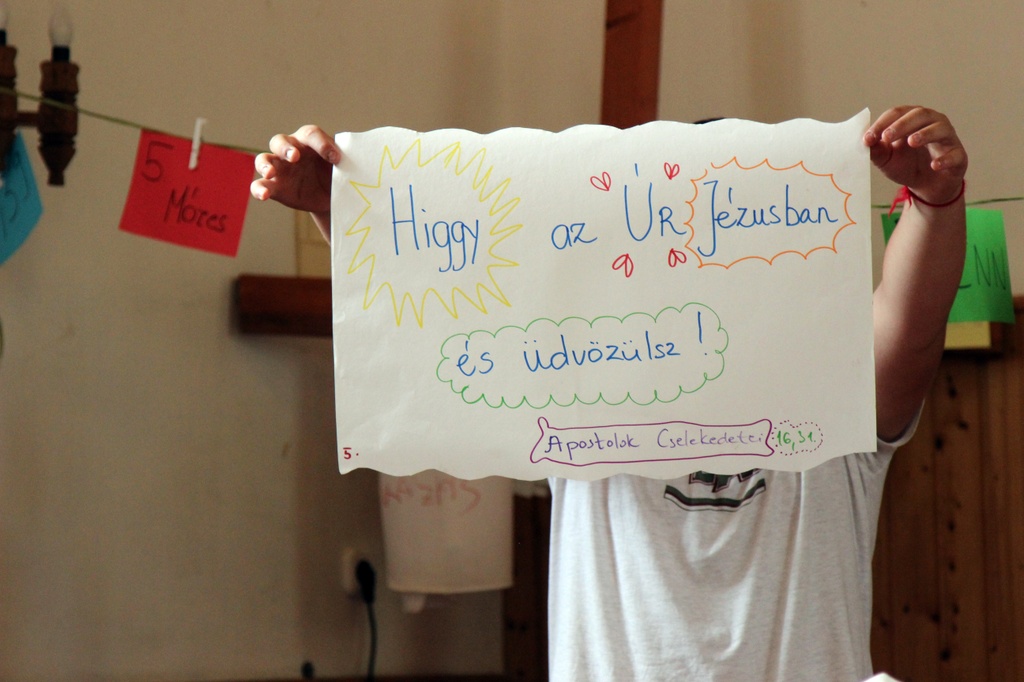 5
Móres
Higgy az Úr Jézusban
és üdvözülsz!
Apostolok Cselekedetei 16,31.
5.